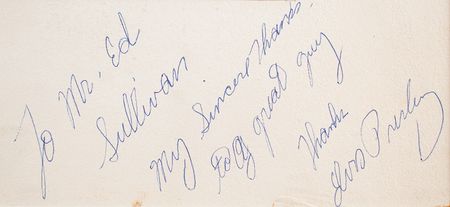 To Mr. Ed
Sullivan
My Sincere Thanks
to a great guy
Thanks
Elvis Presley